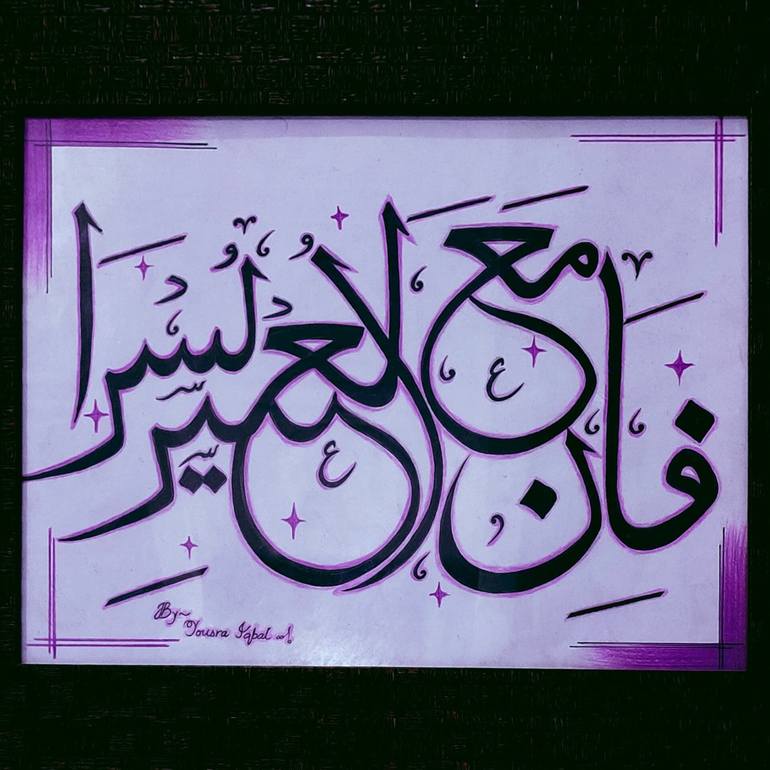 فَإِنَّ مَعَ الْعُسْرِ يُسْرًا
By~
Yousra Iqbal